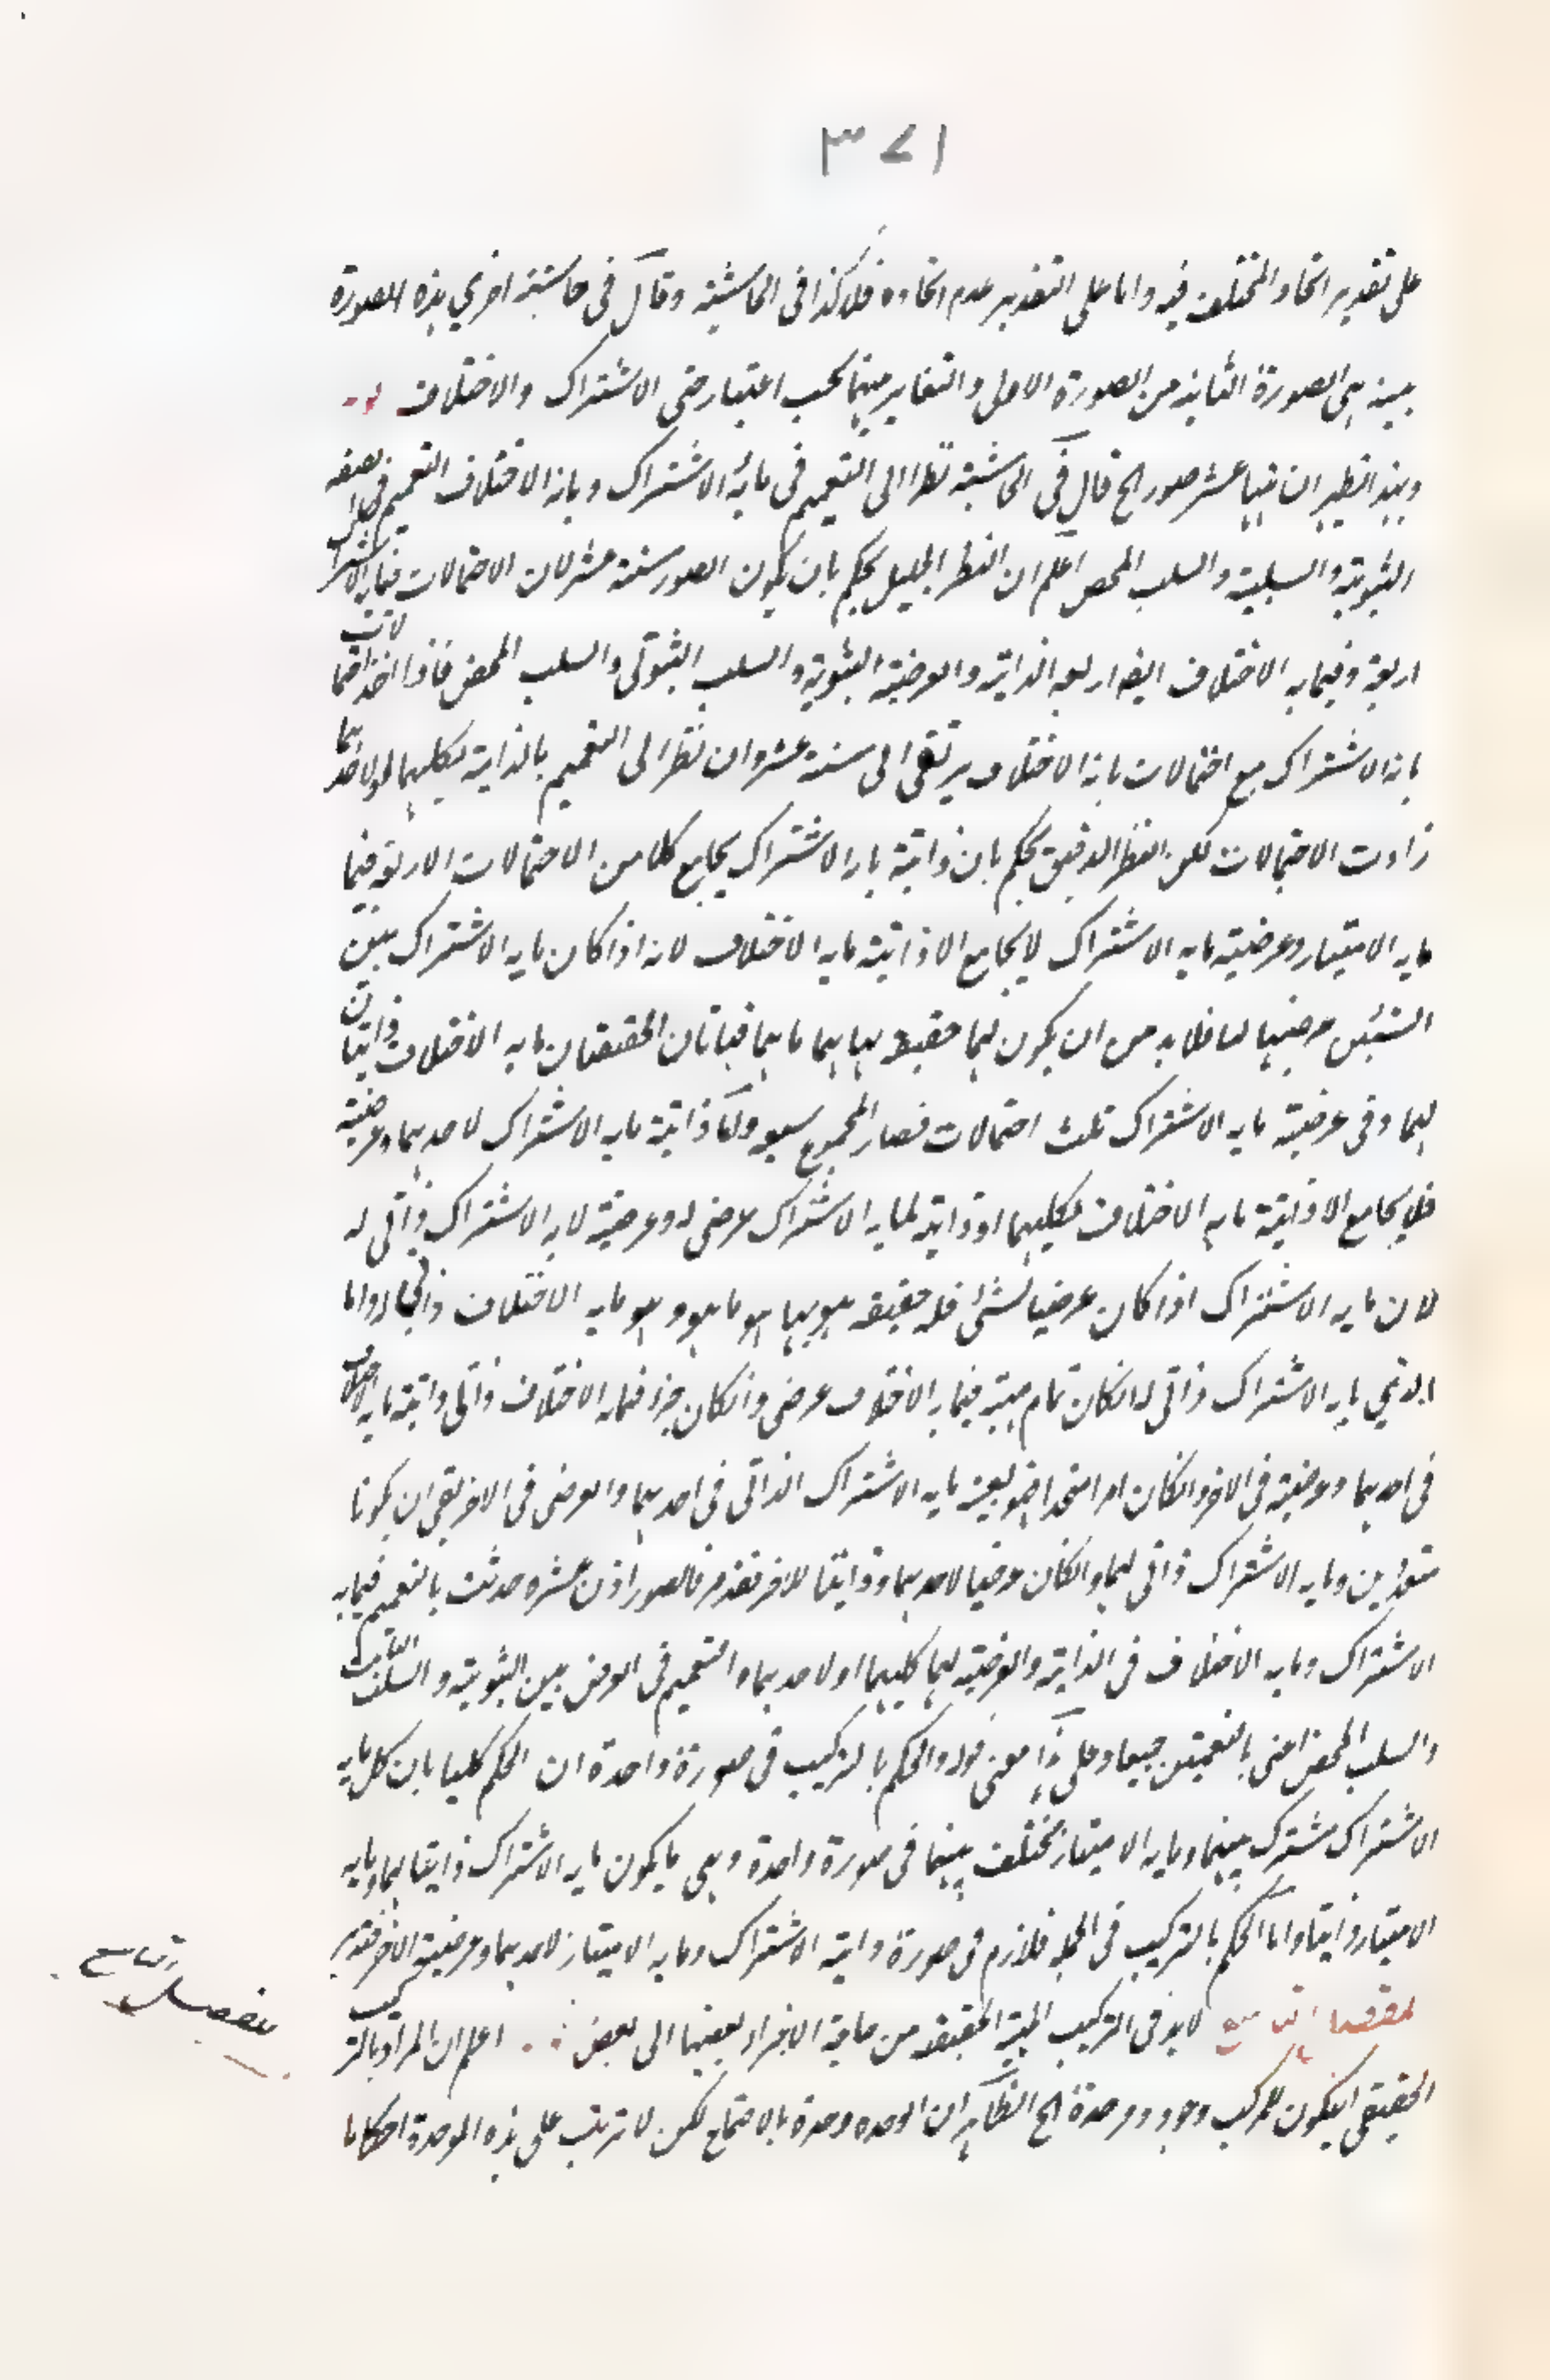 ٣٧١
على تقدير اتحاد المختلف فيه واما على التقدير عدم اتحاده فلا كذا فى الحاشية وقال فى حاشية اخرى هذه الصورة
بعينه هى الصورة الثانية من الصورة الاولى والتغاير بينهما بحسب اعتبار حتى الاشتراك والاختلاف
وبهذا يظهر ان ههنا عشر صور الخ قال فى الحاشية نظرا الى التعميم فى ما به الاشتراك وما به الاختلاف التعميم فى
الثبوتية والسلبية والسلب المحض اعلم ان النظر الجليل يحكم بان يكون الصور ستة عشر لان الاحتمالات فيما به الاشتراك
اربعة وفيما به الاختلاف ايضا اربعة الذاتية والعرضية الثبوتية والسلب الثبوتى والسلب المحض فاذا اخذ احتمالات
ما به الاشتراك مع احتمالات ما به الاختلاف يرتقى الى ستة عشر وان نظر الى التعميم بالذاتية لكليهما او لاحدهما
زادت الاحتمالات لكن النظر الدقيق يحكم بان ذاتية ما به الاشتراك يجامع كلا من الاحتمالات الاربعة فيما
ما به الامتياز وعرضية ما به الاشتراك لا يجامع الا ذاتية ما به الاختلاف لانه اذا كان ما به الاشتراك بين
الشيئين عرضيا لهما فلا بد من ان يكون لهما حقيقة بها هما ما هما فهاتان الحقيقتان ما به الاختلاف ذاتيتان
لهما وفى عرضية ما به الاشتراك ثلث احتمالات فصار المجموع سبعة ولما ذاتية ما به الاشتراك لاحدهما وعرضيته
فلا يجامع الا ذاتية ما به الاختلاف لكليهما او ذاتية لما به الاشتراك عرضى له وعرضية لما به الاشتراك ذاتى له
لان ما به الاشتراك اذا كان عرضيا لشئ فله حقيقة هو بها هو ما هو وهو ما به الاختلاف ذاتى له واما
الذى ما به الاشتراك ذاتى له ان كان تمام مهية فما به الاختلاف عرضى وان كان جزء فما به الاختلاف ذاتى وذاتية ما به الاختلاف
فى احدهما وعرضية فى الاخر وان كان امرا متحدا فهو بعينه ما به الاشتراك الذاتى فى احدهما والعرضى فى الاخر بقى ان يكونا
متغايرين وما به الاشتراك ذاتى لهما وان كان عرضيا لاحدهما وذاتيا للاخر فقد مر فالصور اذن عشرة حدثت بالتعميم فيما به
الاشتراك وما به الاختلاف فى الذاتية والعرضية لهما كليهما او لاحدهما والتعميم فى العرض بين الثبوتية والسلب الثابت
والسلب المحض اعنى بالتعميمين جميعا وعلى هذا معنى قوله والحكم بالتركيب فى صورة واحدة ان الحكم كليا بان كل ما به
الاشتراك مشترك بينهما وما به الامتياز مختلف بينهما فى صورة واحدة وهى ما يكون ما به الاشتراك ذاتيا لهما وما به
الامتياز ذاتيا واما الحكم بالتركيب فى الجملة فلازم فى صورة ذاتية الاشتراك وما به الامتياز لاحدهما وعرضية الاخر فتدبر
المقصد التاسع لا بد فى التركيب المهية الحقيقية من حاجة الاجزاء بعضها الى بعض اعلم ان المراد بالتركيب
الحقيقى ان يكون للمركب وجود ووحدة الخ الظاهر ان الوحدة وحدة بالاجتماع لكن لا ترتب على هذه الوحدة احكاما
مقصد تاسع